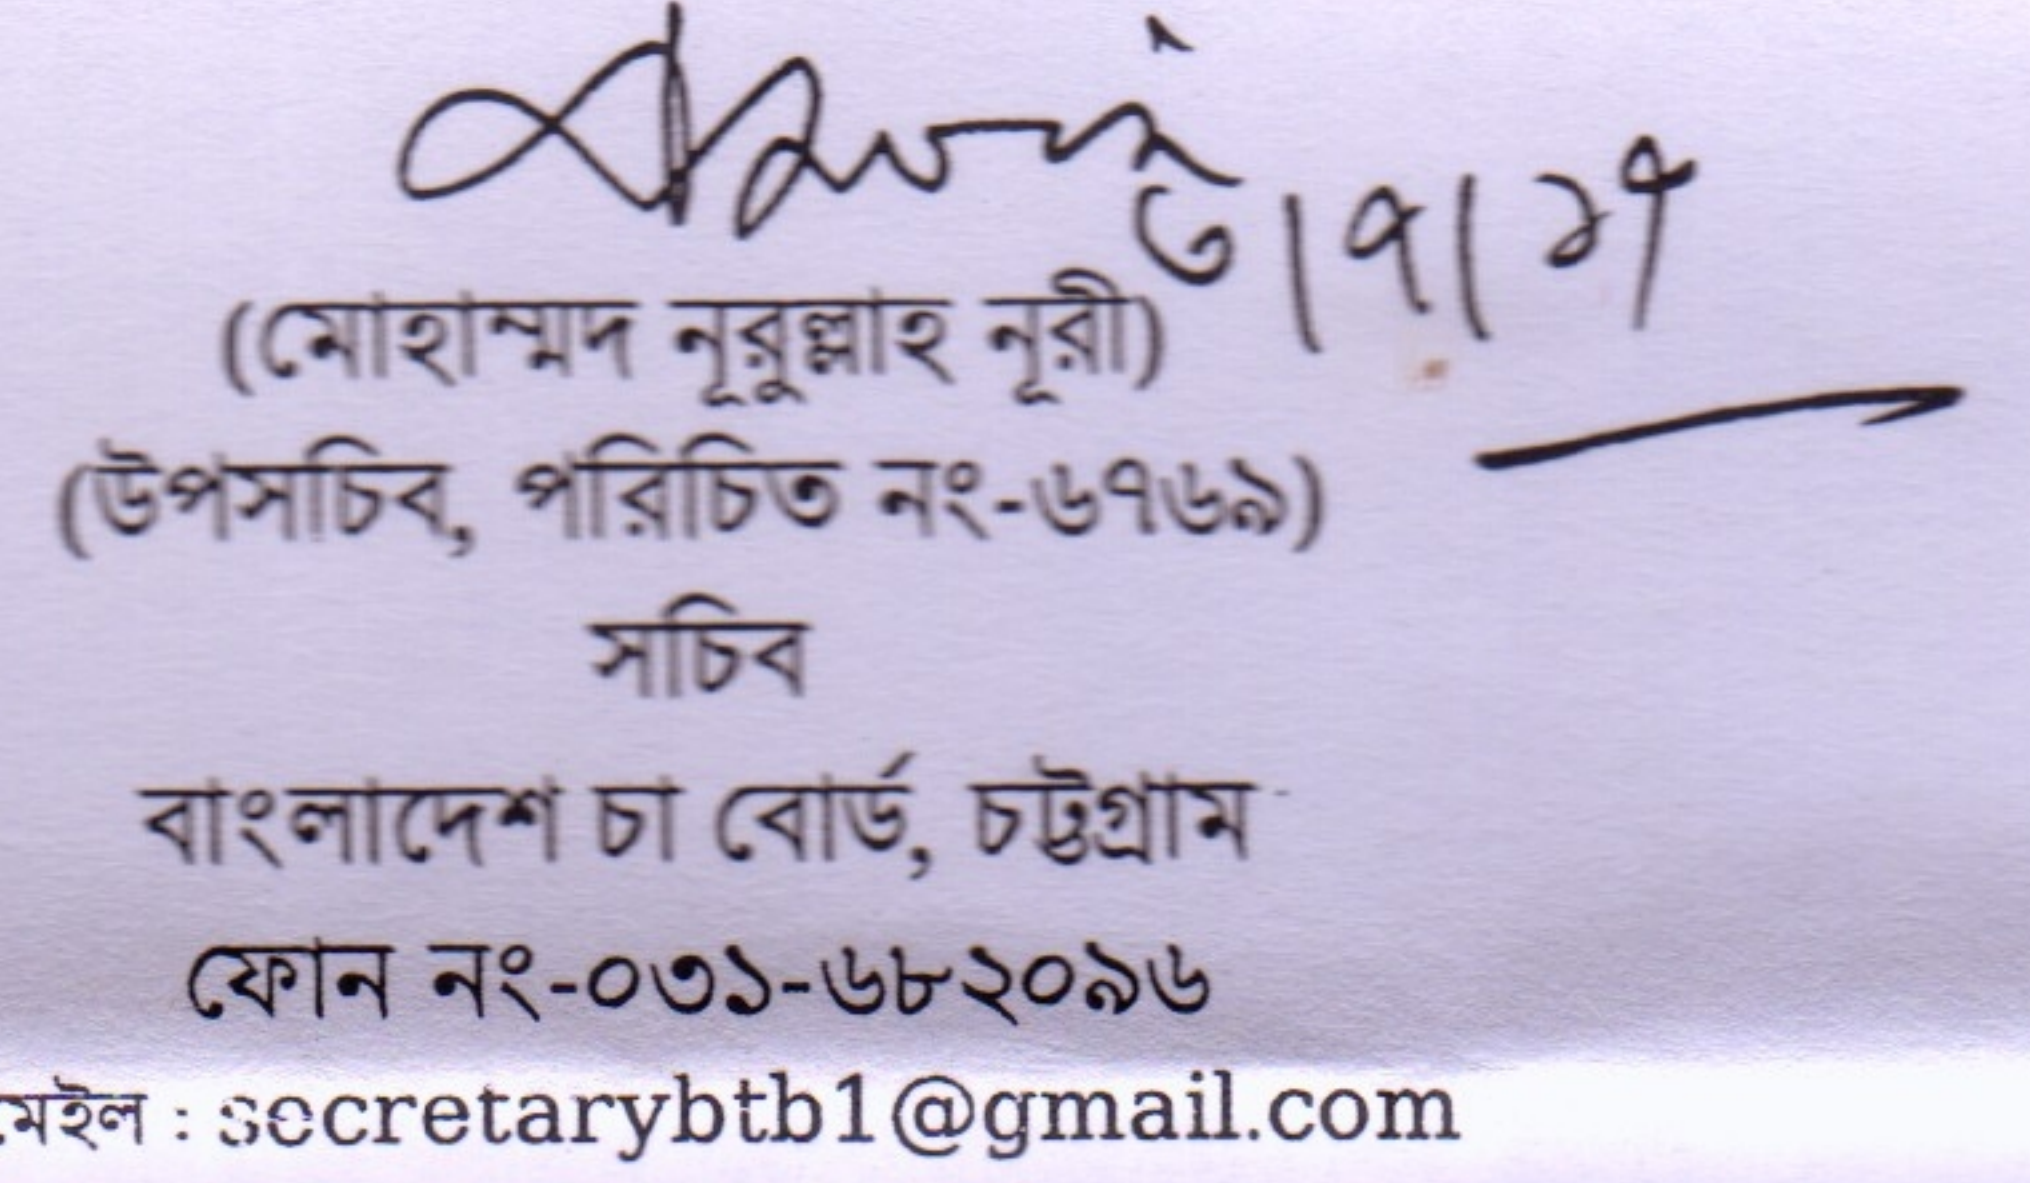 ৩|৭|১৭
(মোহাম্মদ নূরুল্লাহ নূরী)
(উপসচিব, পরিচিত নং-৬৭৬৯)
সচিব
বাংলাদেশ চা বোর্ড, চট্টগ্রাম
ফোন নং-০৩১-৬৮২০৯৬
মেইল : secretarybtb1@gmail.com